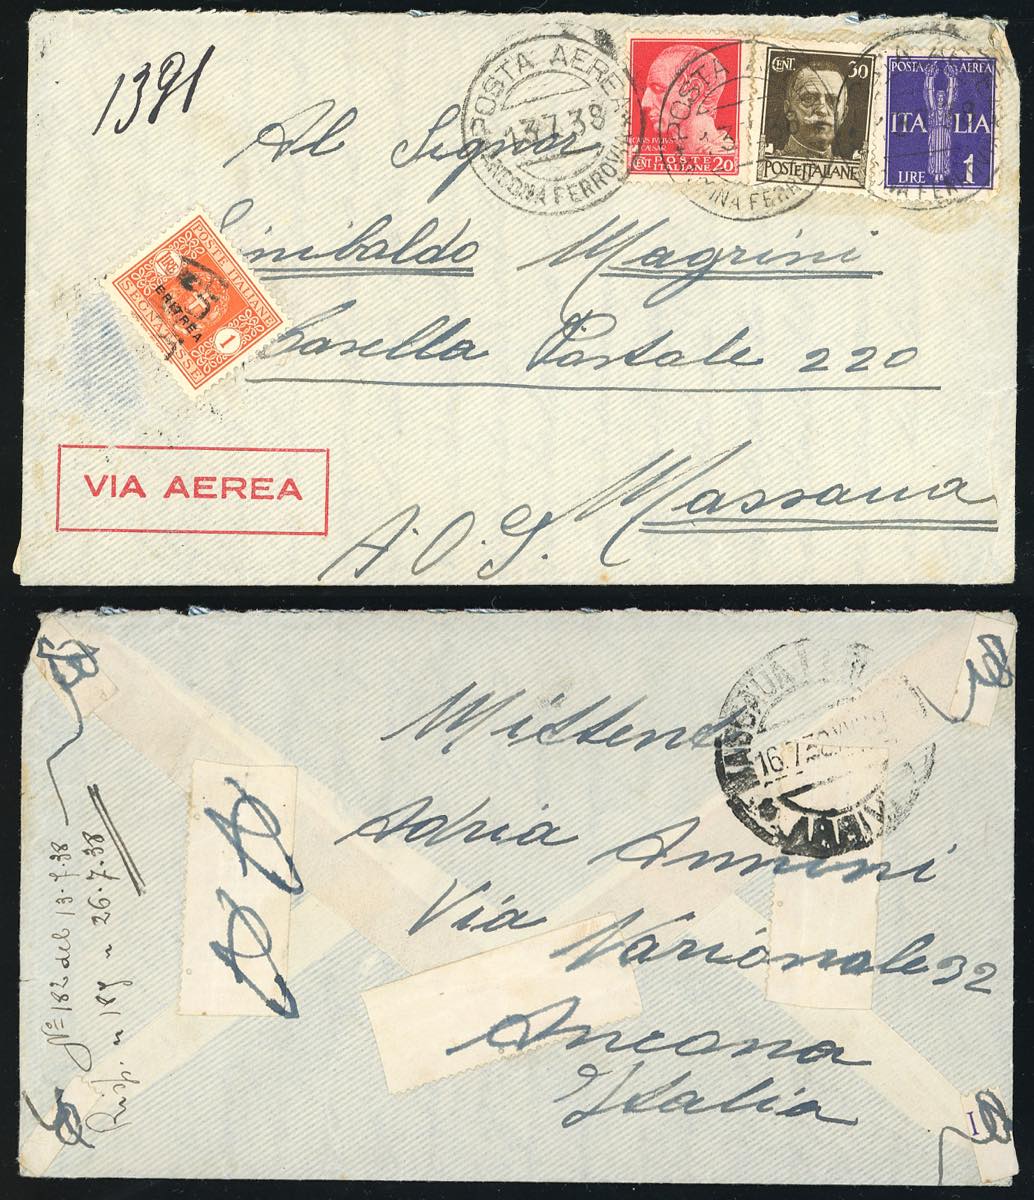 1391
POSTA AEREA
13.7.38
ANCONA FERROVIA
CENT POSTE ITALIANE 20
CENT. 30
POSTE ITALIANE
POSTA AEREA
ITALIA
LIRE 1
Al Signor
Sinibaldo Magrini
Casella Postale 220
Massaua
A.O.I.
POSTE ITALIANE
LIRE
ERITREA
1
SEGNATASSE
VIA AEREA
Mittend
Adria Annini
Via Nazionale 32
Ancona
Italia
MASSAUA
16.7.38
Nº 182 del 13.7.38
Risp. " 189 " 26.7.38
I